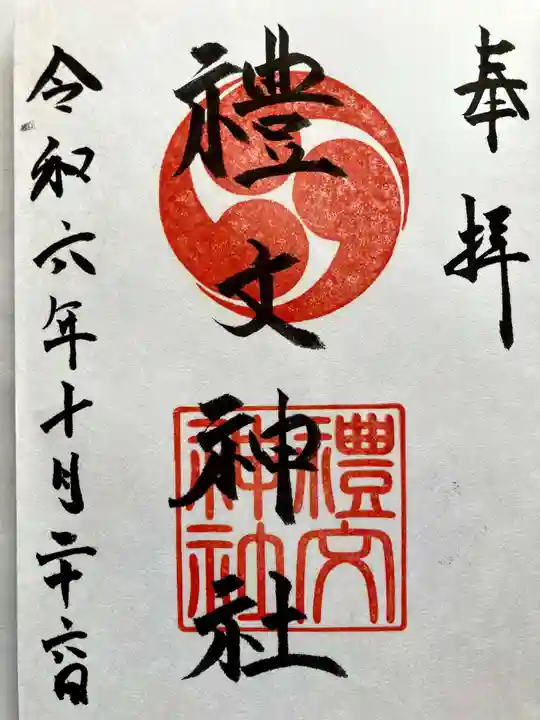 奉拝
禮文神社
禮文
神社
令和六年十月二十六日